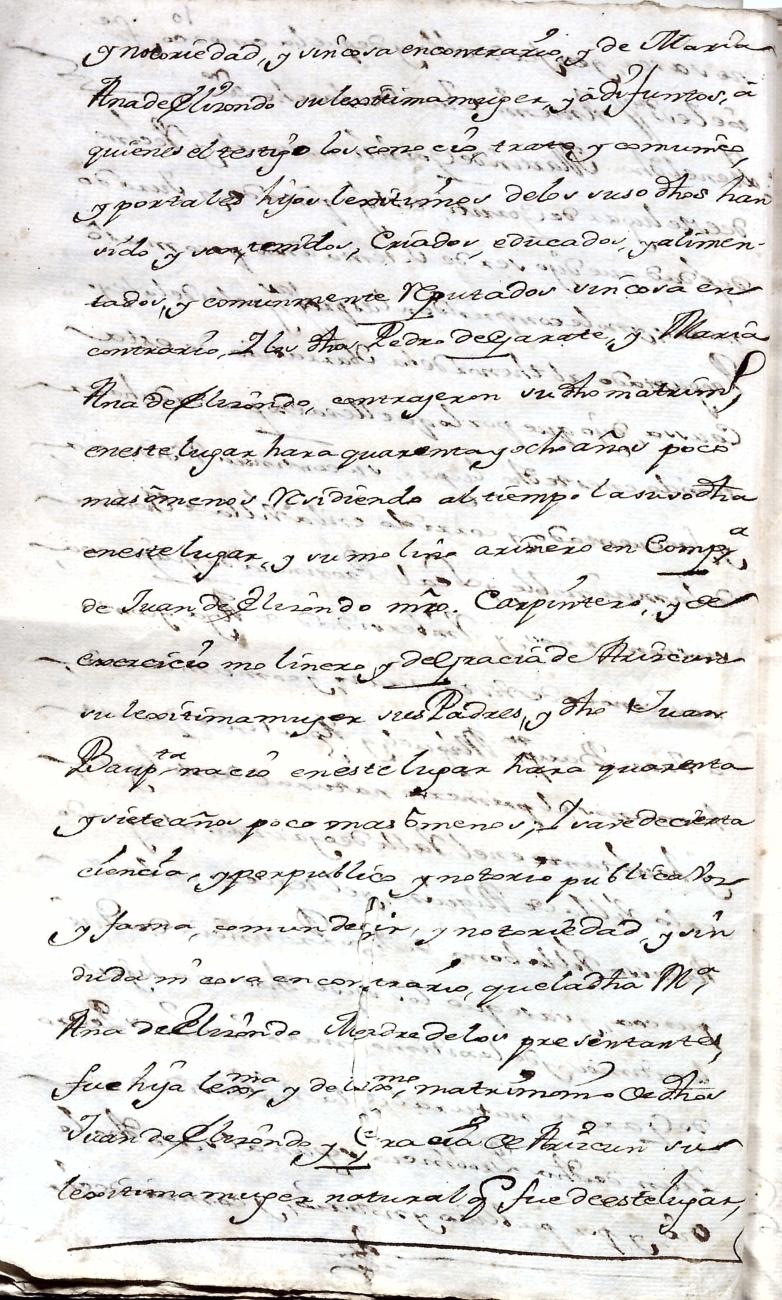 y notoriedad, y sin cosa en contrario, y de Maria
Ana de Elirondo su lexitima muger, ya difuntos, á
quienes el testigo los conoció trató, y comunicó,
y por tales hijos lexitimos de los susodhos han
sido, y son tenidos, Criados, educados, y alimen-
tados, y comunmente Reputados sin cosa en
contrario, Y los dhos Pedro de Garate, y Maria
Ana de Elirondo, contrajeron su dho matrim.
en este lugar hara quarenta y ocho años poco
mas ò menos Residiendo al tiempo la susodha
en este lugar, y su molino arinero en Compa
de Juan de Elirondo mro. Carpintero, y de
exercicio molinero y de Gracia de Arizcun
su lexitima muger sus Padres, y dho Juan
Baupta nació en este lugar hara quarenta
y siete años poco mas ò menos, Y save de cierta
ciencia, y por publico y notorio publica voz,
y fama, comun decir, y notoriedad, y sin
duda ni cosa en contrario, que la dha Ma
Ana de Elirondo Madre de los presentantes,
fue hija lexma y de lexmo matrimonio de dhos
Juan de Elirondo y Gracia de Arizcun su
lexitima muger natural q fue de este lugar,